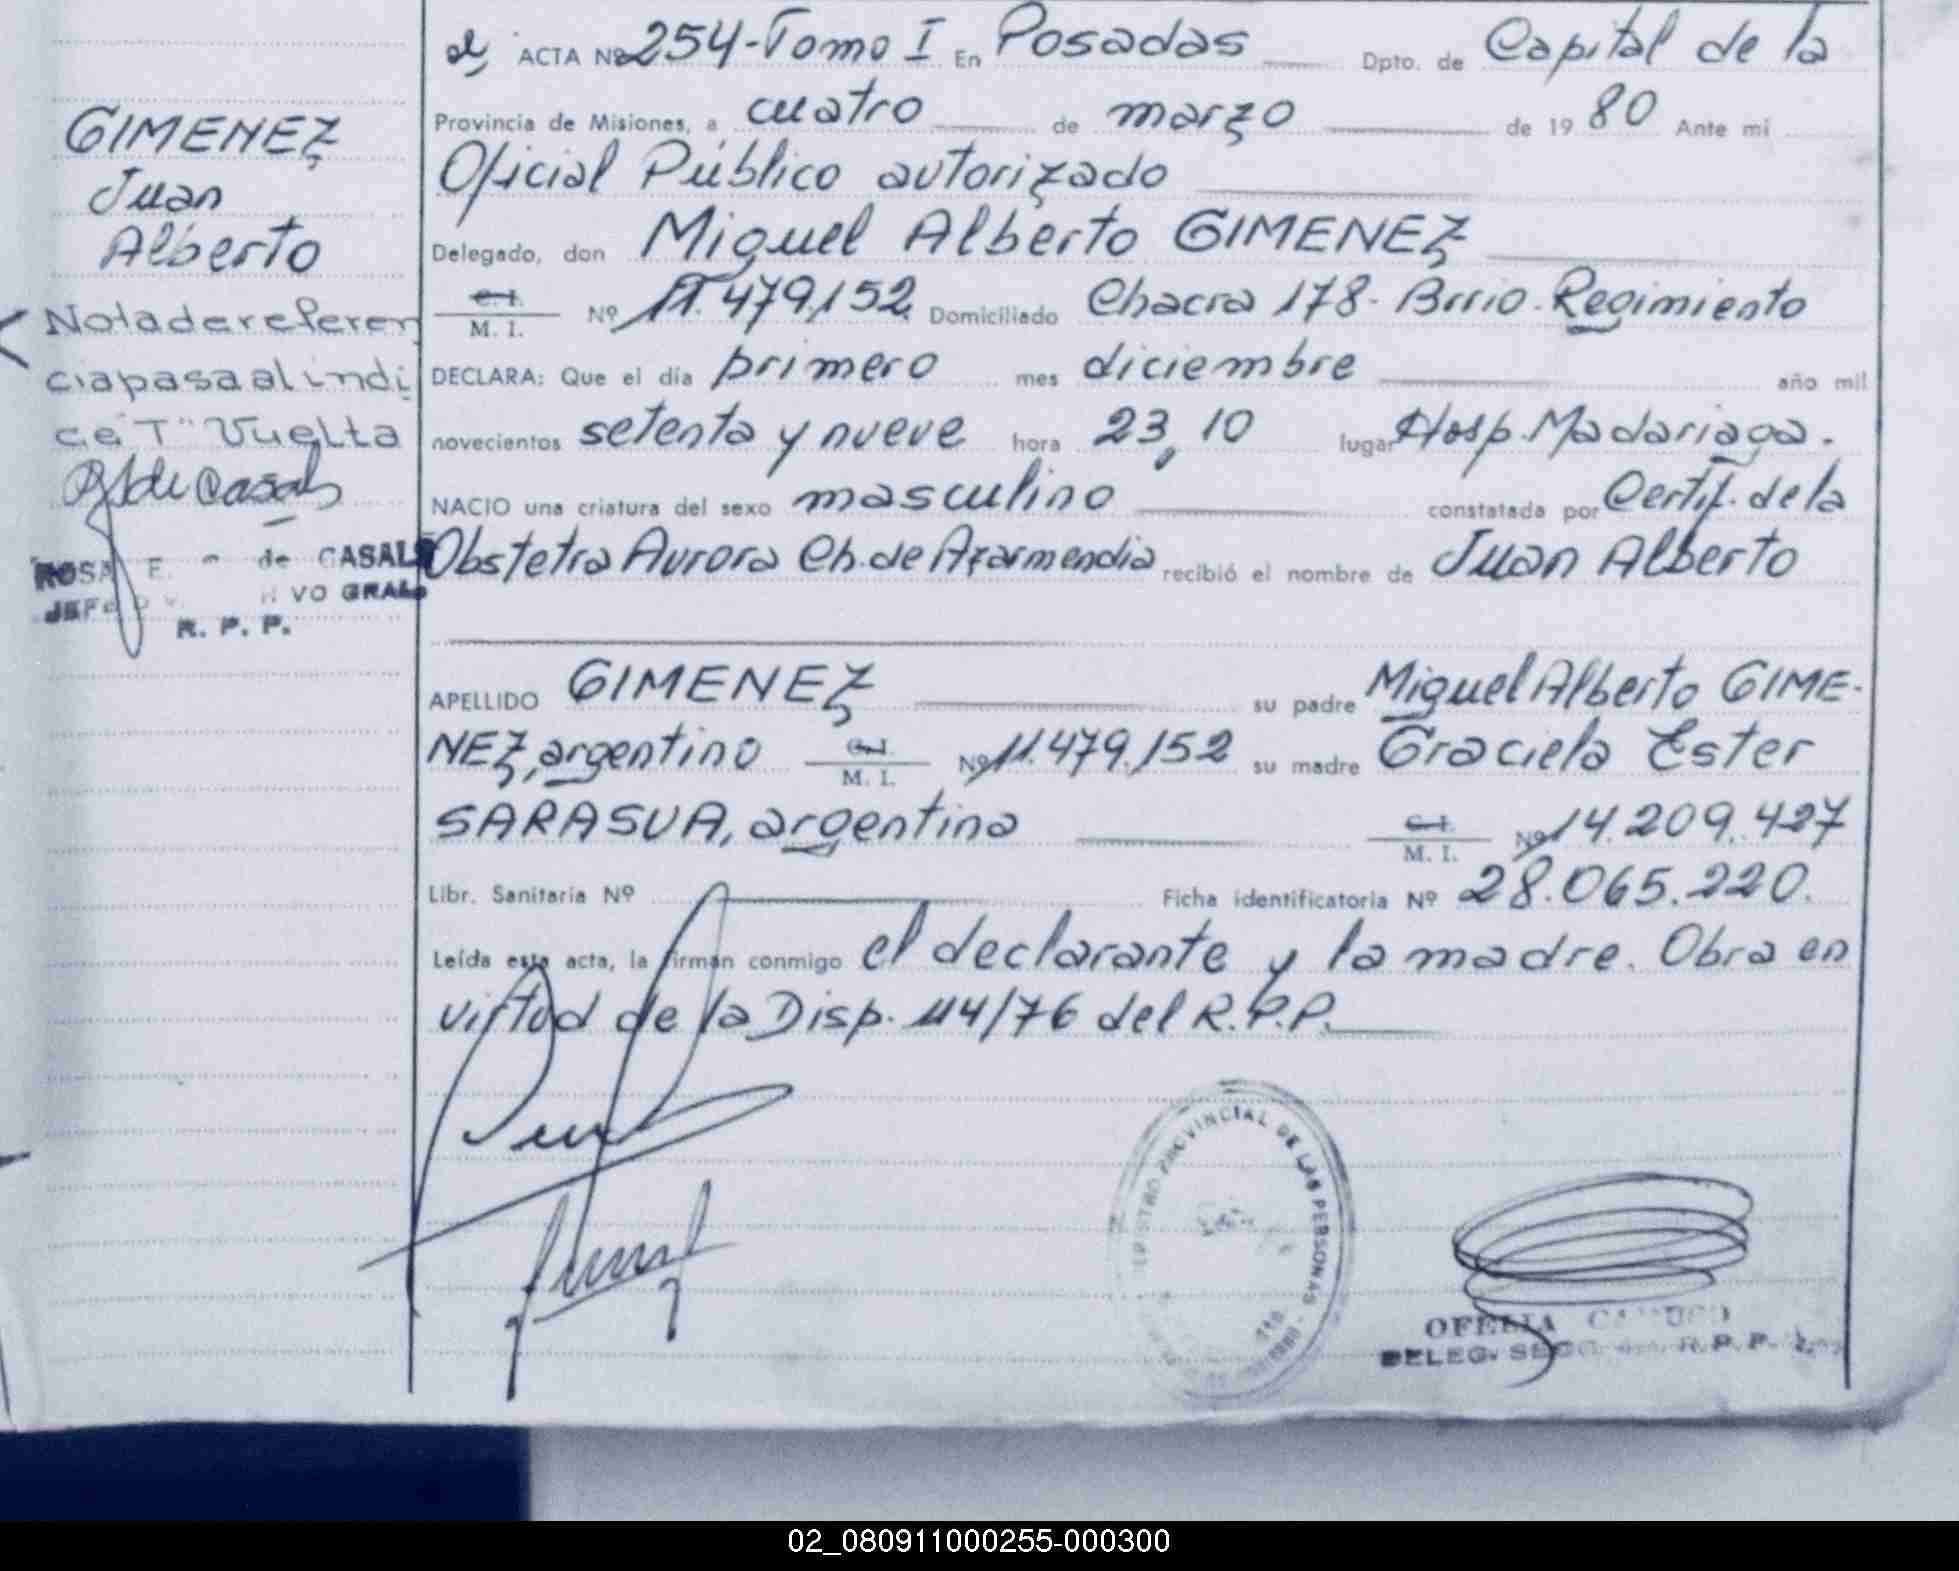 GIMENEZ
Juan
Alberto
Nota de referen
cia pasa al indi
ce T° Vuelta
R de Casals
ROSA E. de CASALS
JEFE VO GRAL.
R. P. P.
ACTA Nº 254-Tomo I En Posadas Dpto. de Capital de la
Provincia de Misiones, a cuatro de marzo de 1980 Ante mi
Oficial Público autorizado
Delegado, don Miguel Alberto GIMENEZ
C.I.
M. I. Nº 11.479,152 Domiciliado Chacra 178- Brrio. Regimiento
DECLARA: Que el día primero mes diciembre año mil
novecientos setenta y nueve hora 23,10 lugar Hosp. Madariaga.
NACIO una criatura del sexo masculino constatada por Certif. de la
Obstetra Aurora Ch. de Azarmendia recibió el nombre de Juan Alberto
APELLIDO GIMENEZ su padre Miguel Alberto GIME-
NEZ, argentino C.I. M. I. Nº 11.479,152 su madre Graciela Ester
SARASUA, argentina C.I. M. I. Nº 14.209.427
Libr. Sanitaria Nº Ficha identificatoria Nº 28.065.220.
Leída esta acta, la firman conmigo el declarante y la madre. Obra en
virtud de la Disp. 114/76 del R.P.P.
REGISTRO PROVINCIAL DE LAS PERSONAS
OFELIA
DELEG. SECC. R. P. P.
02_080911000255-000300